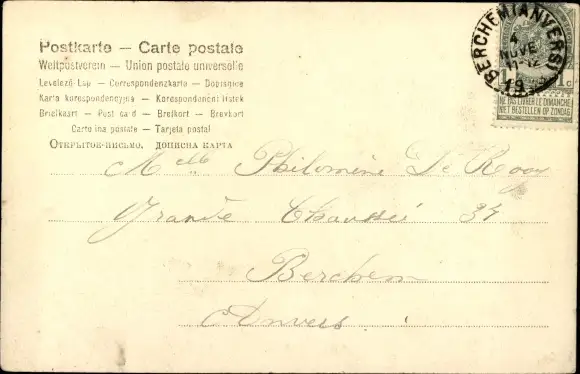 Postkarte — Carte postale
Weltpostverein — Union postale universelle
Levelező-Lap — Correspondenzkarte — Dopisnice
Karta korespondencyjna — Korespondenční lístek
Briefkaart — Post card — Brefkort — Brevkort
Cartolina postale — Tarjeta postal
Открытое-письмо. дописна карта
BERCHEM (ANVERS)
4
NOVE
11-12
19
1c
NE PAS LIVRER LE DIMANCHE
NIET BESTELLEN OP ZONDAG
Melle Philomène De Rooy
Grande Chaussée 34
Berchem
Anvers